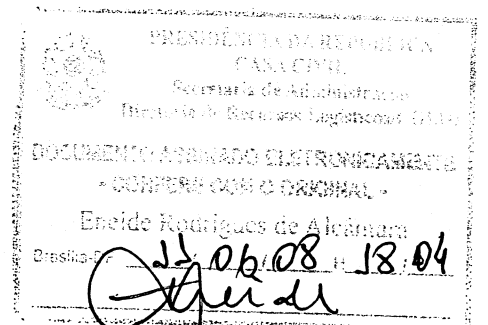 PRESIDÊNCIA DA REPÚBLICA
CASA CIVIL
Secretaria de Administração
Diretoria de Recursos Logísticos
DOCUMENTO ASSINADO ELETRONICAMENTE
- CONFERE COM O ORIGINAL -
Eneide Rodrigues de Alcântara
Brasília-DF 11/06/08 H 18:04